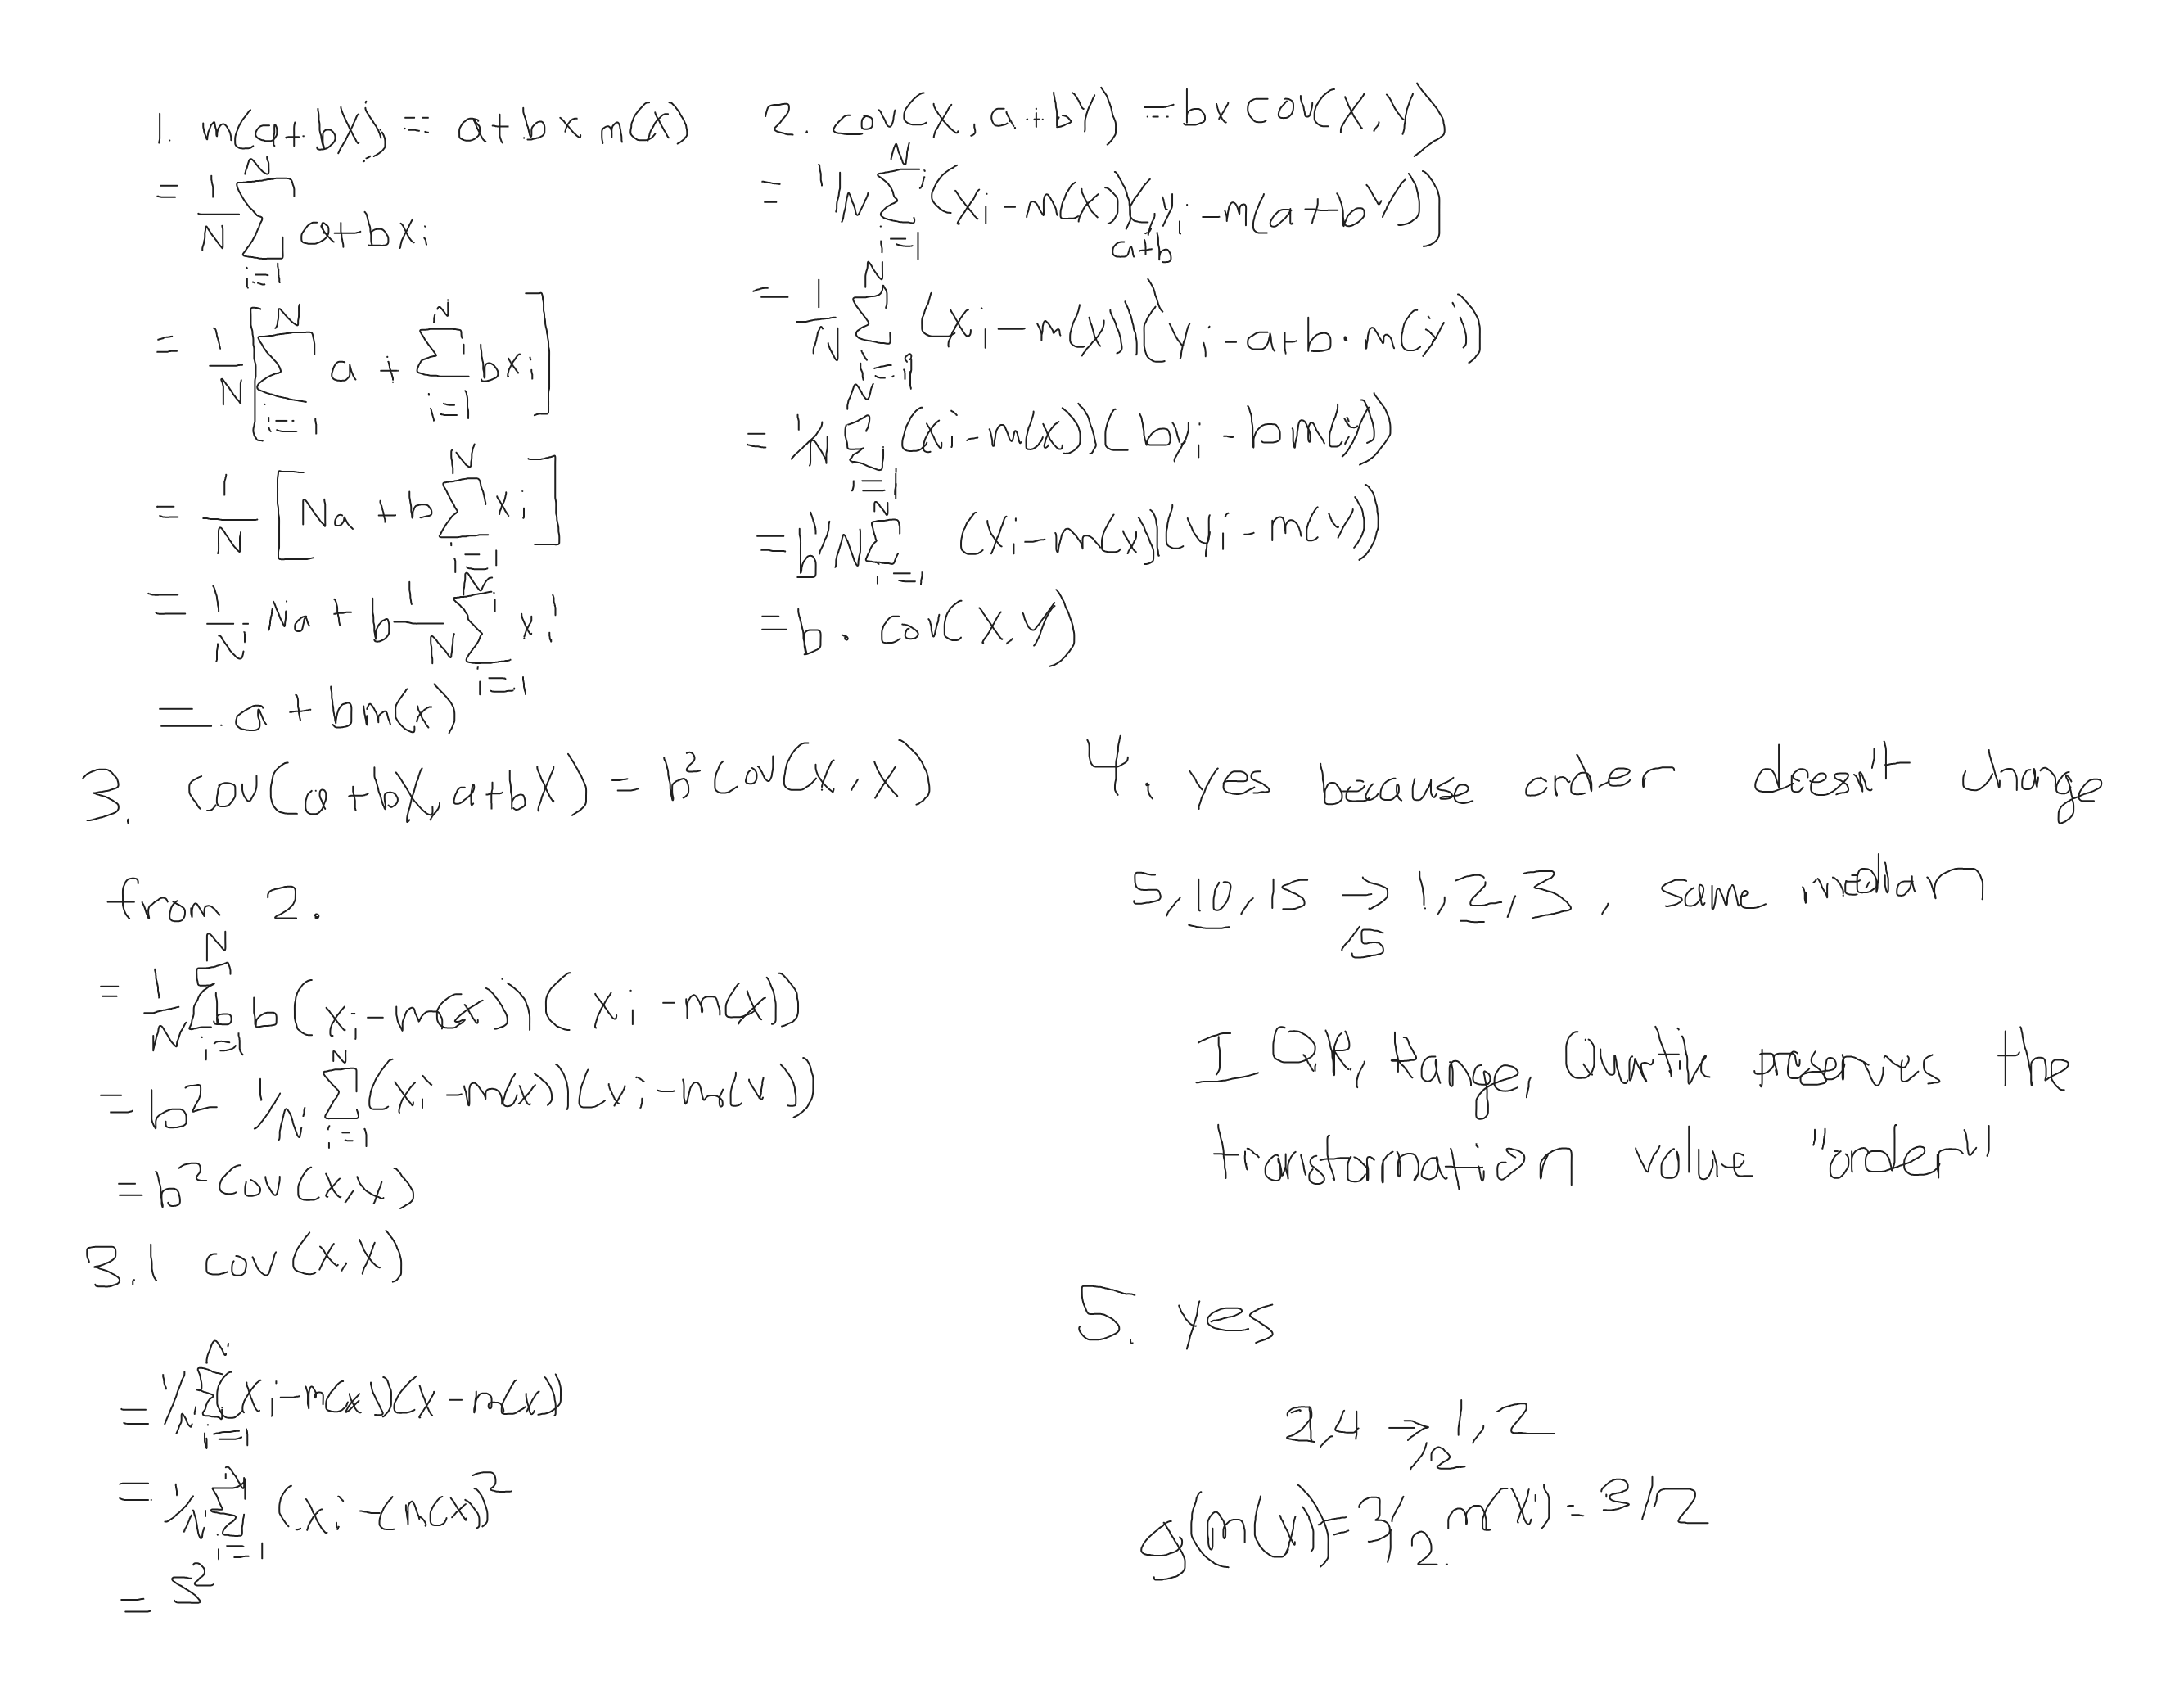 1. m(a+bX) = a+b×m(X)
= 1/N ∑_{i=1}^{N} a+bxi
= 1/N [∑_{i=1}^{N} a + ∑_{i=1}^{N} bxi]
= 1/N [Na + b∑_{i=1}^{N} xi]
= 1/N Na + b 1/N ∑_{i=1}^{N} xi
= a+bm(x)
2. cov(X, a+bY) = b×cov(X,Y)
= 1/N ∑_{i=1}^{N} (xi-m(X))(yi-m(a+bY))
a+b
= 1/N ∑_{i=1}^{N} (xi-m(x))(yi-a+b·m(y))
= 1/N ∑_{i=1}^{N} (xi-m(x))(byi-bm(y))
= b 1/N ∑_{i=1}^{N} (xi-m(x))(yi-m(y))
= b·cov(X,Y)
3. cov(a+bX, a+bX) = b² cov(x,x)
from 2.
= 1/N ∑_{i=1}^{N} b b(xi-m(x))(xi-m(x))
= b² 1/N ∑_{i=1}^{N} (xi-m(x))(xi-m(x))
= b² cov(x,x)
3.1 cov(X,X)
= 1/N ∑_{i=1}^{N} (xi-m(x))(x-m(x))
= 1/N ∑_{i=1}^{N} (xi-(m(x))²
= s²
4. yes because order doesn't change
5,10,15 → 1,2,3, same median
/5
IQR, range, Quntile preserves the
transtormation value "order"
5. yes
2,4 → 1,2
/2
g(m(x))=3/2 m(x)=3/2